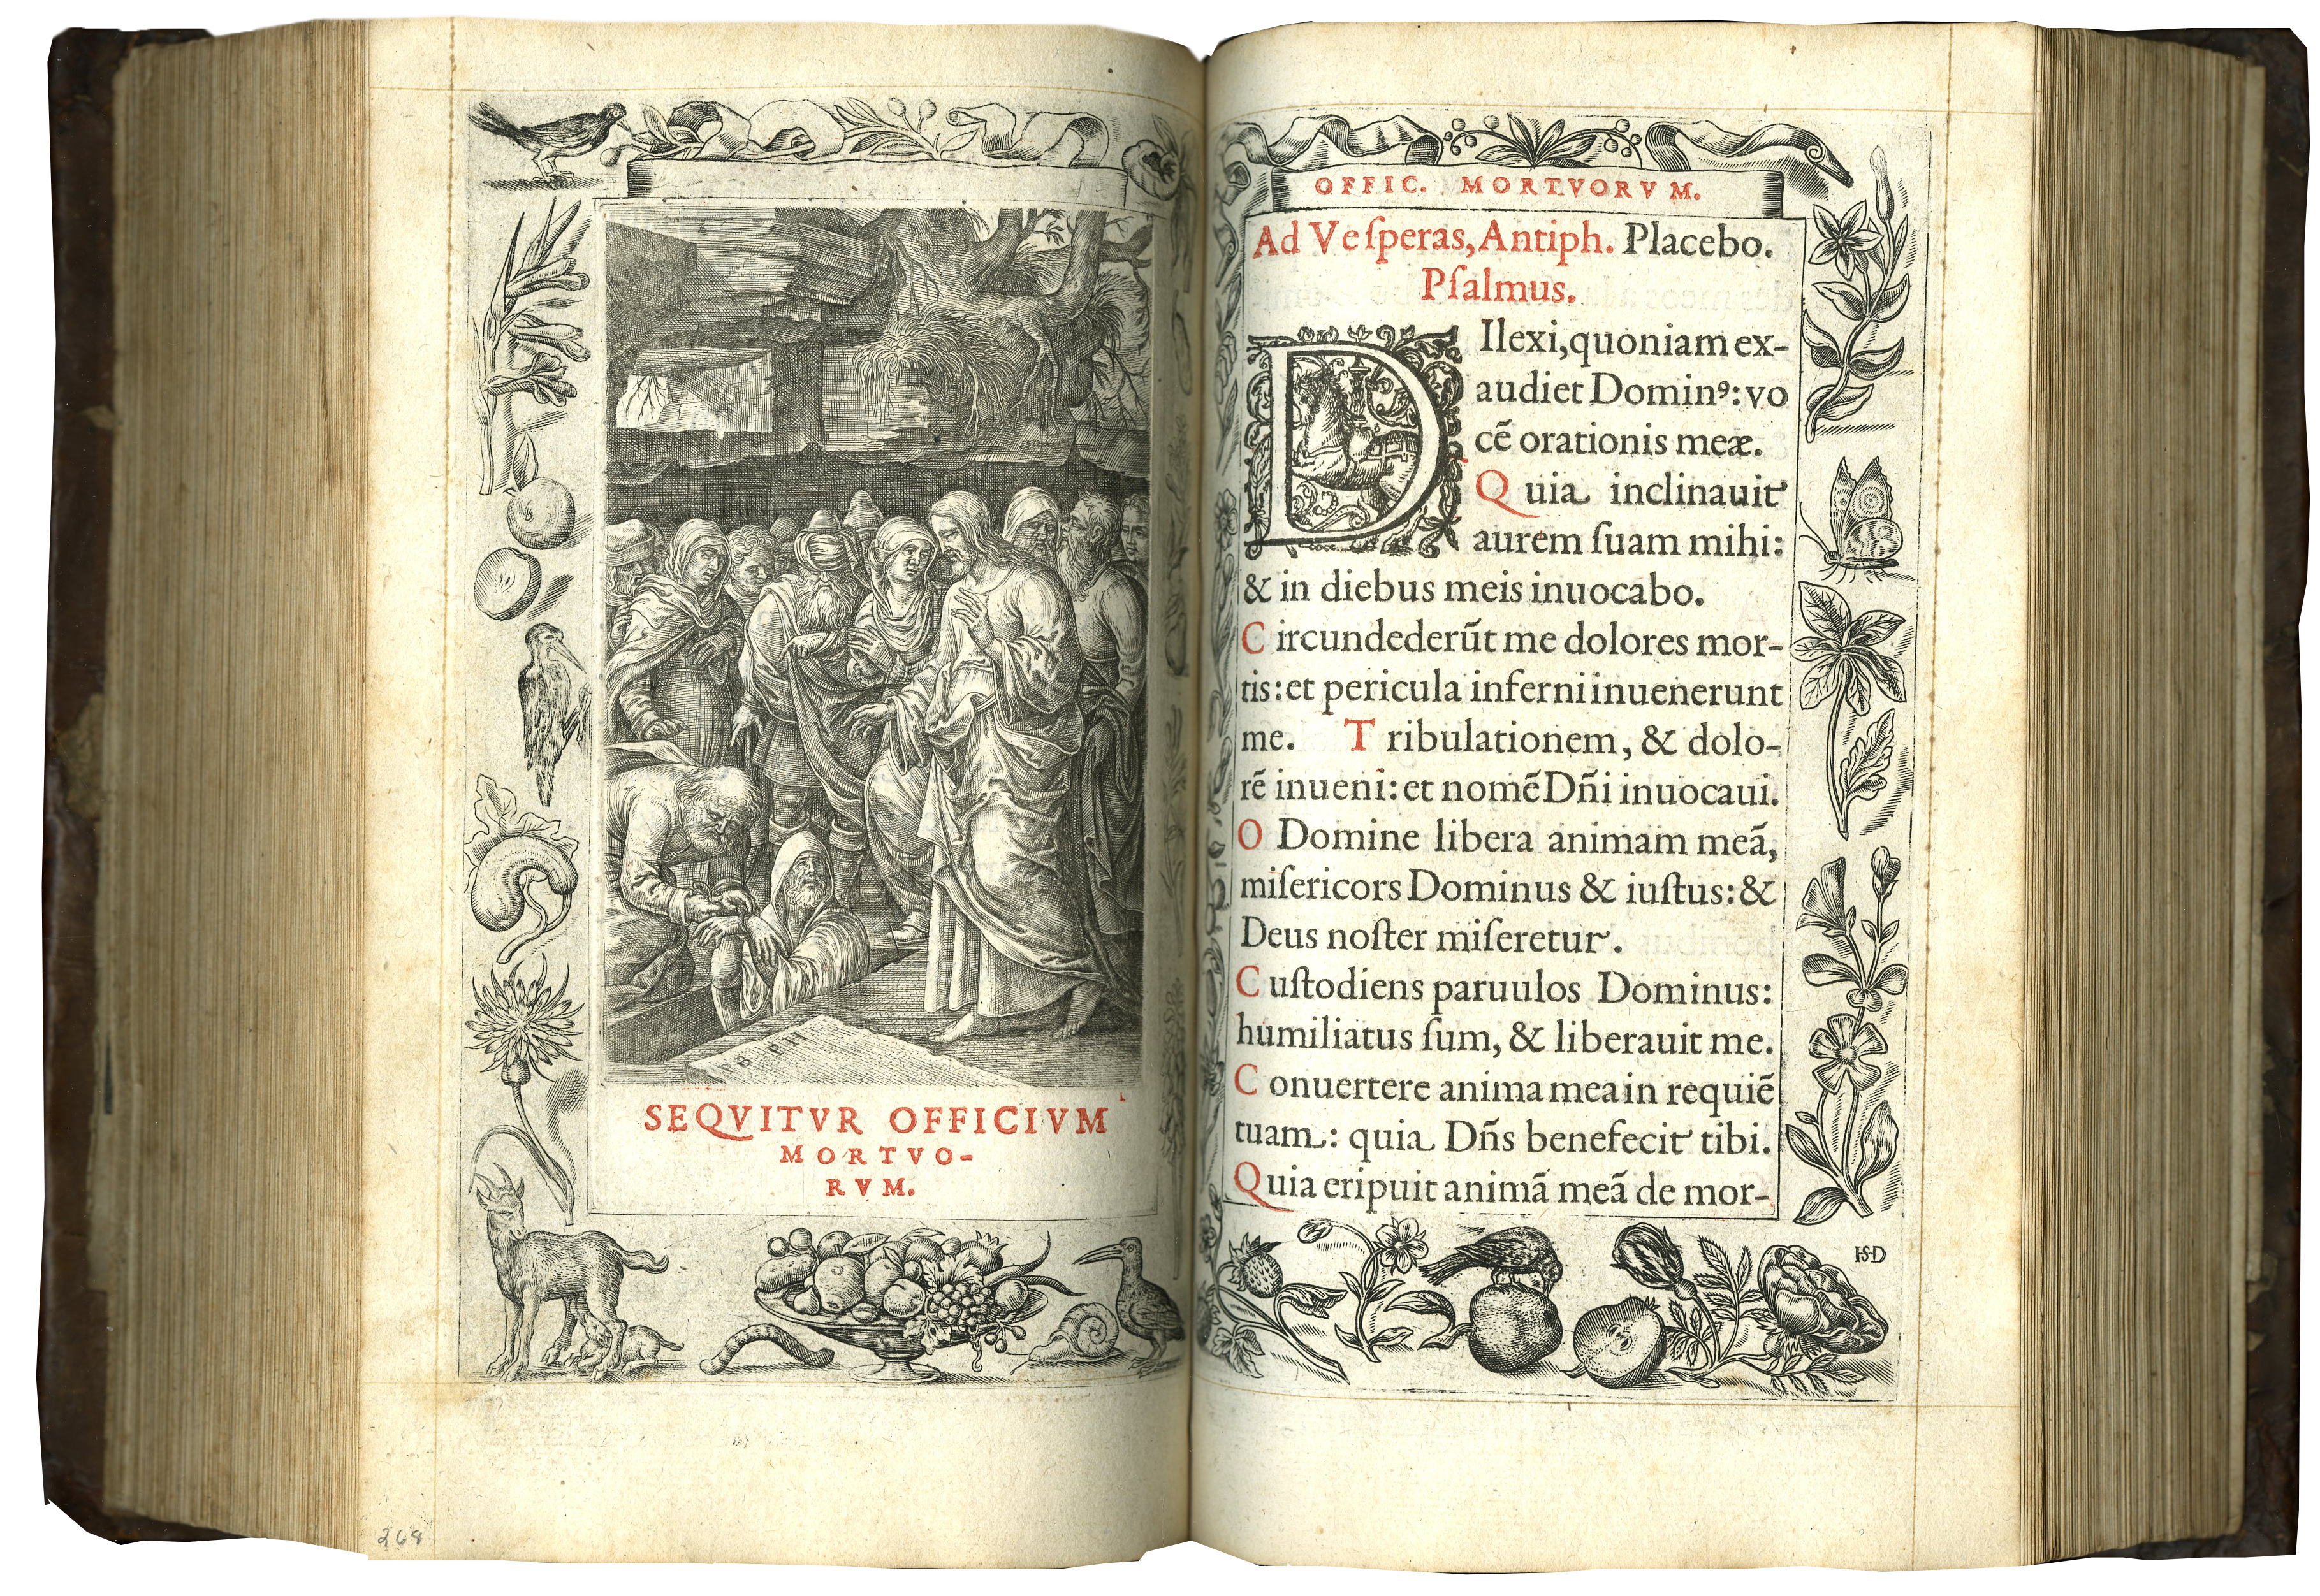 PB  PH
SEQVITVR OFFICIVM
MORTVO-
RVM.
268
OFFIC. MORTVORVM.
Ad Veſperas, Antiph. Placebo.
Pſalmus.
DIlexi, quoniam ex-
audiet Dominꝰ: vo
cẽ orationis meæ.
Quia inclinauit
aurem ſuam mihi:
& in diebus meis inuocabo.
Circundederũt me dolores mor-
tis: et pericula inferni inuenerunt
me. Tribulationem, & dolo-
rẽ inueni: et nomẽ Dñi inuocaui.
O Domine libera animam meã,
miſericors Dominus & iuſtus: &
Deus noſter miſeretur.
Cuſtodiens paruulos Dominus:
humiliatus ſum, & liberauit me.
Conuertere anima mea in requiẽ
tuam: quia Dñs benefecit tibi.
Quia eripuit animã meã de mor-
HSD